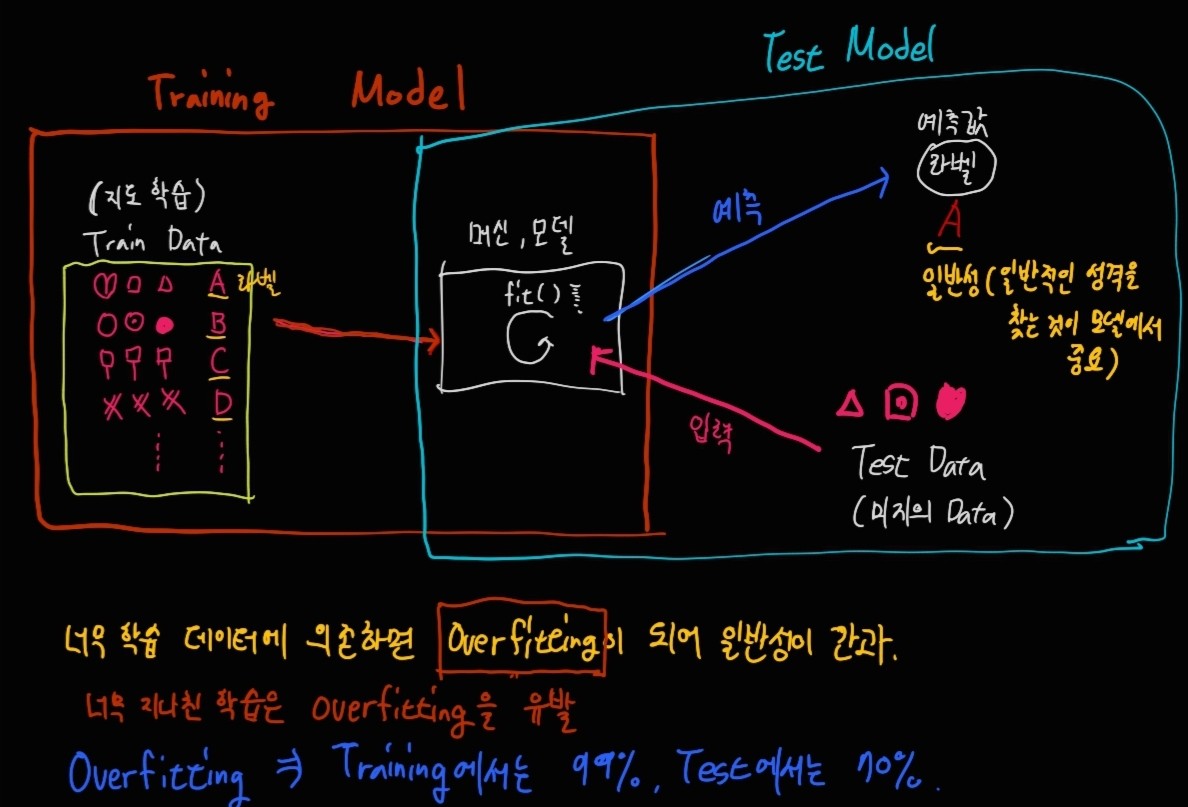 Training Model
Test Model
(지도 학습)
Train Data
A 라벨
B
C
D
머신, 모델
fit()
예측
입력
예측값
라벨
A
일반성 (일반적인 성격을
찾는 것이 모델에서
중요)
Test Data
(미지의 Data)
너무 학습 데이터에 의존하면 Overfitting이 되어 일반성이 간과.
너무 지나친 학습은 overfitting을 유발
Overfitting ⇒ Training에서는 99%, Test에서는 70%.